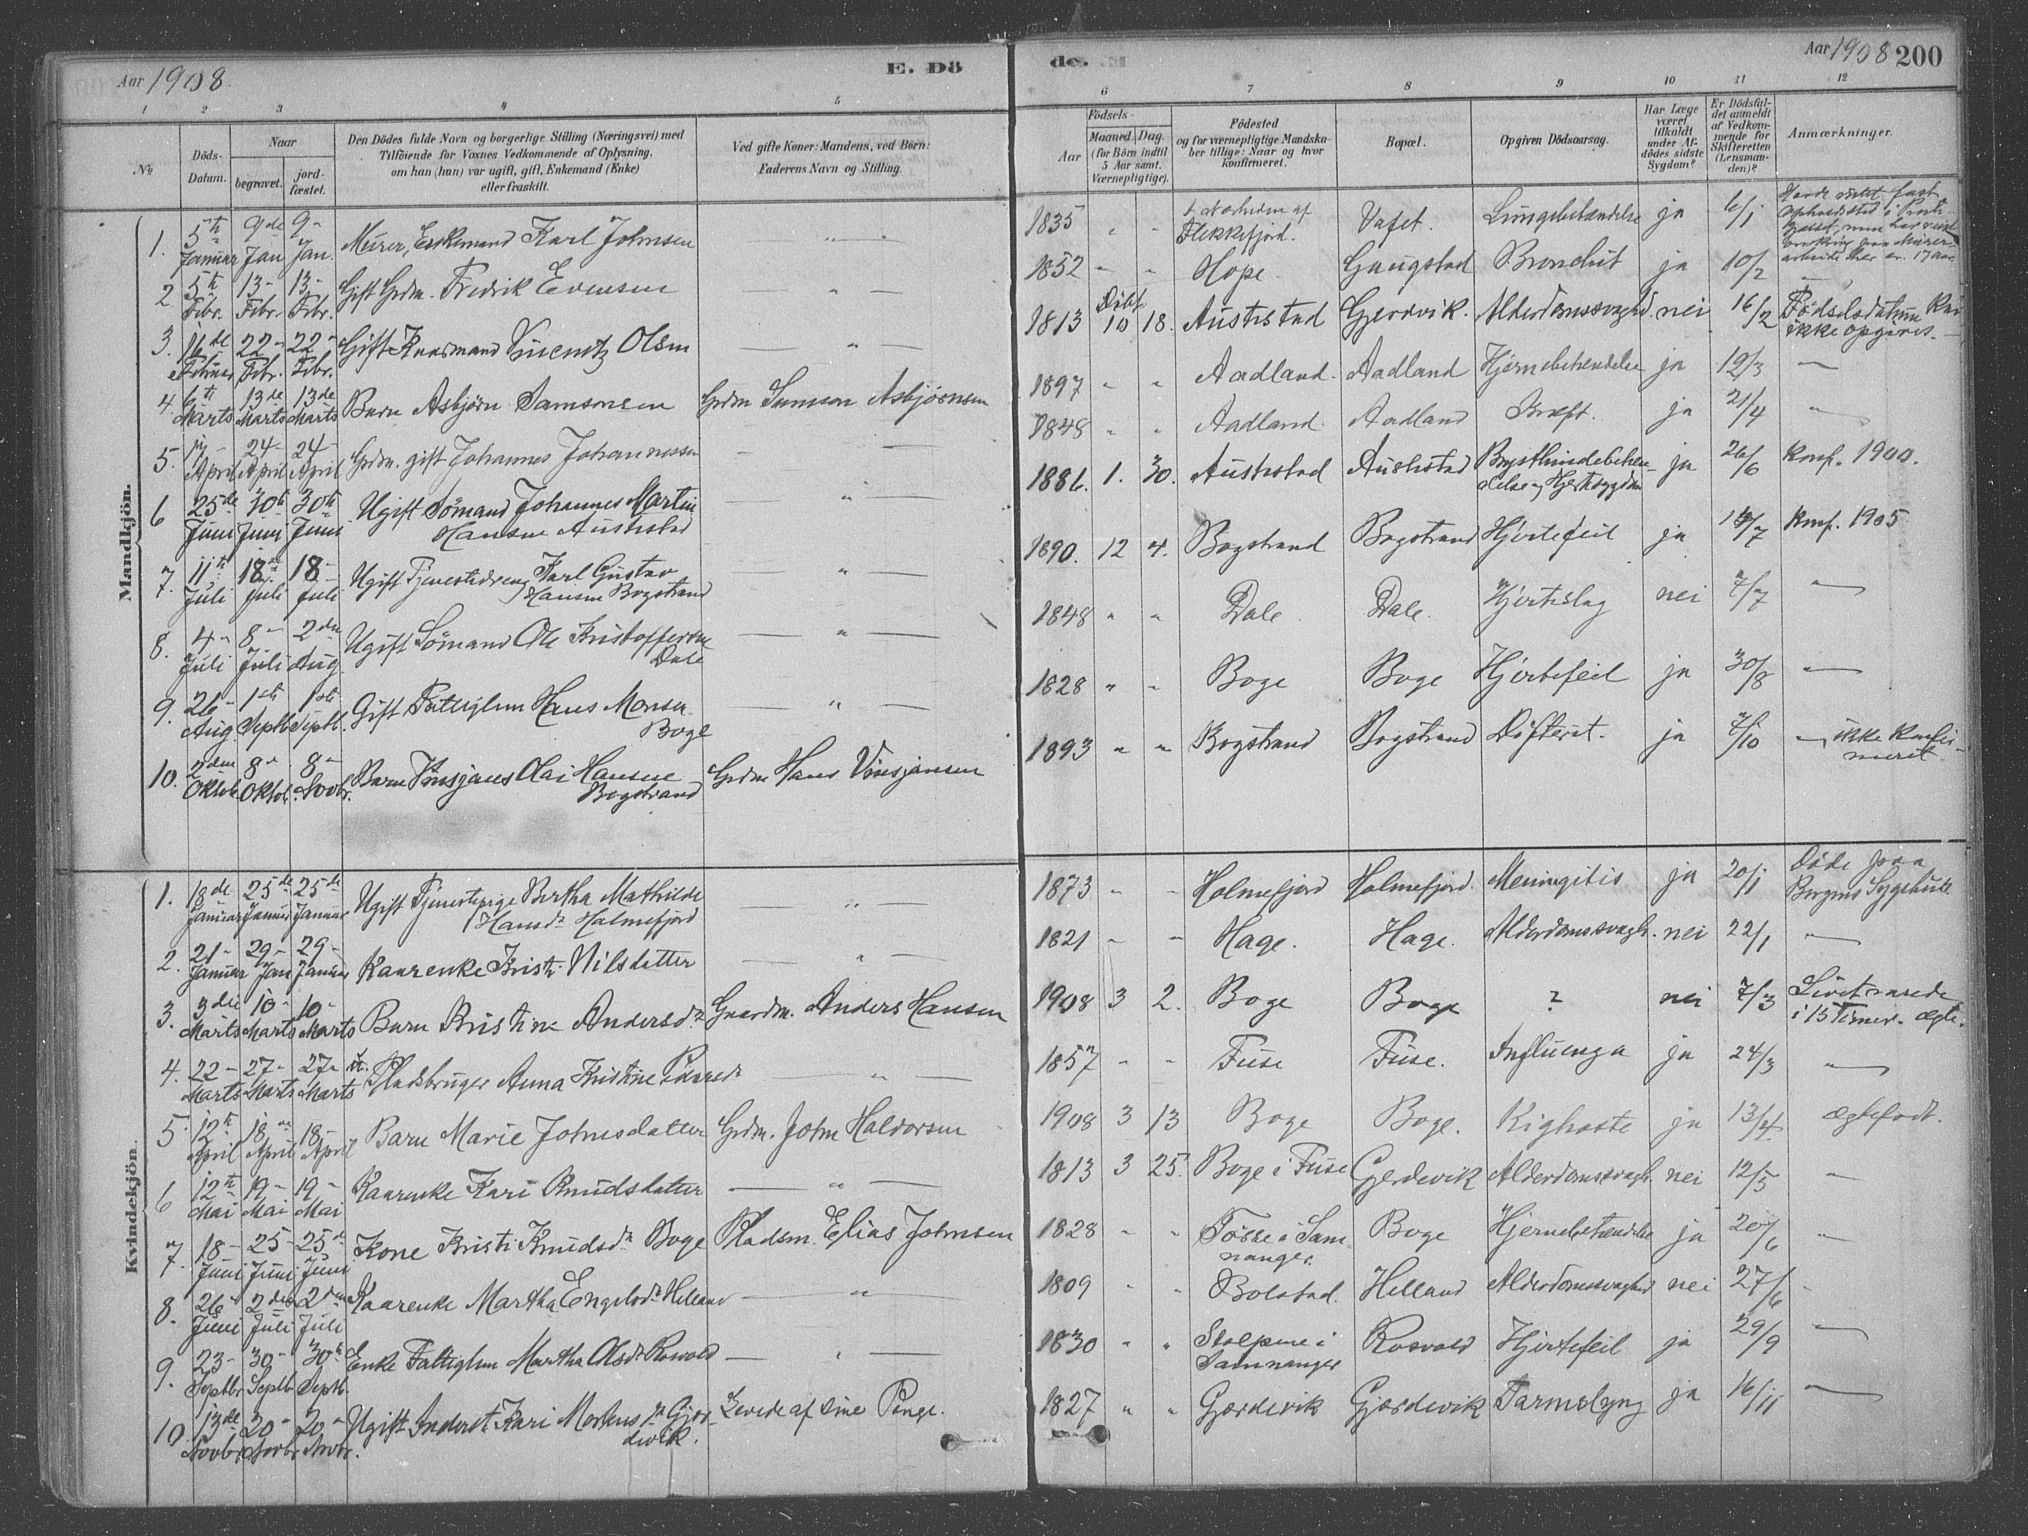 Aar 1908.
E. Dö
de.
Aar 1908 200
1 2 3 4 5 6 7 8 9 10 11 12
No
Döds-Datum.
Naar
begravet.
jord-fæstet.
Den Dödes fulde Navn og borgerlige Stilling (Næringsvei) med
Tilföiende for Voxnes Vedkommende af Oplysning,
om han (hun) var ugift, gift, Enkemand (Enke)
eller fraskilt.
Ved gifte Koner: Mandens, ved Börn:
Faderens Navn og Stilling.
Födsels-
Aar
Maaned. Dag.
(for Börn indtil
5 Aar samt
Værnepligtige).
Födested
og for værnepligtige Mandska-
ber tillige: Naar og hvor
konfirmeret.
Bopæl.
Opgiven Dödsaarsag.
Har Læge
været
tilkaldt
under Af-
dödes sidste
Sygdom?
Er Dödsfal-
det anmeldt
af Vedkom-
mende for
Skifteretten
(Lensman-
den)?
Anmærkninger.
Mandkjön.
1. 5te Januar 9de Jan 9- Jan. Murer, Enkemand Karl Johnsen — " — 1835 " - i Nærheden af Flekkefjord. Vafet. Lungebetændelse ja 6/1
2 5te Febr. 13- Febr. 13- Febr. Gift Grdm. Fredrik Evensen — " — 1852 - " Hope. Gaugstad Bronchit ja 10/2 —
3. 16de Februar 22- Febr. 22- Febr. Gift Kaarmand Olsen — " — 1813 Döbt 10 18. Austestad Gjerdvik. Alderdomssvaghd. nei 16/2 Fødselsdatum kan ikke opgives.
4. 6te Marts 13de Marts 13de Marts Barn Asbjørn Samsonsen Grdm Samson Asbjørnsen 1897 " " Aadland. Aadland Hjernebetændelse ja 12/3 —
5. 17- April 24- April 24- April Grdm. gift Johannes Johannessen — " — 1848 " " Aadland. Aadland Kræft. ja 21/4 "
6 25de Juni 30te Juni 30te Juni Ugift Sømand Johannes Martin Hansen Austestad — " — 1886. 1. 30. Austestad Austestad Brysthindebetæn-delse og Hjertesygdom ja 26/6 Konf. 1900.
7. 11te Juli 18de Juli 18- Juli Ugift Tjenestedreng Karl Gustav Hansen Bogstrand — " — 1890. 12 4. Bogstrand Bogstrand Hjertefeil ja 14/7 Konf. 1905
8. 4- Juli 8- Juli 2den Aug Ugift Sømand Ole Kristoffersen Dale — " — 1848 " " Dale Dale. Hjerteslag nei 7/7 —
9. 26- Aug. 1ste Septb. 1ste Septbr. Gift Fattiglem Hans Monsen Boge — " — 1828 " - Boge Boge Hjertefeil ja 30/8 —
10. 2den Oktob. 8- Oktob. 8- Novbr. Barn Vinsjans Olai Hansen Bogstrand Grdm Hans Vinsjansen 1893 " " Bogstrand Bogstrand Difterit. ja 7/10 ikke konfir-meret.
Kvindekjön.
1. 18de Januar 25de Januar 25de Januar Ugift Tjenestepige Bertha Mathilde Hansdr Holmefjord — " — 1873 - - Holmefjord Holmefjord. Meningitis ja 20/1 Døde paa Bergens Sygehus
2. 21- Januar 29- Jan 29- Januar Kaarenke Kristi Nilsdatter — " — 1821 - - Hage. Hage. Alderdomssvagh. nei 22/1 —
3. 3die Marts 10- Marts 10- Marts Barn Kristine Andersdr Gaardm. Anders Hansen 1908 3 2. Boge Boge ? nei 7/3 Livet varede i 15 Timer. ægte.
4. 22- Marts 27- Marts 27- Marts Pladsbruger Anna Kristine — " — 1857 - - Fuse Fuse. Influenza ja 24/3 —
5. 12te April 18de April 18- April Barn Marie Johnsdatter Grdm. John Haldorsen 1908 3 13 Boge Boge. Kighoste ja 13/4 ægtefødt.
6 12te Mai 19- Mai 19- Mai Kaarenke Kari Knudsdatter — " — 1813 3 25. Boge i Fuse Gjerdevik Alderdomssvagh. nei 12/5 —
7. 18- Juni 25- Juni 25- Juni Kone Kristi Knudsdr Boge Pladsm. Elias Johnsen 1828 " " Tøsse i Sam-nanger. Boge Hjernebetændelse ja 20/6 "
8. 26- Juni 2den Juli 2den Juli Kaarenke Martha Engelsdr Helland — " — 1809 " " Bolstad. Helland Alderdomssvaghed nei 27/6 "
9. 23- Septbr 30- Septbr 30te Septb. Enke Fattiglem Martha Olsdr Rosvold — " — 1830 " " Stølpene i Samnanger Rosvold Hjertefeil ja 29/9 —
10. 13de Novbr 20- Novbr 20- Novbr. Ugift Inderst Kari Mortensdr Gjær-devik. Levede af sine Penge. 1827 " " Gjærdevik Gjærdevik Tarmslyng ja 16/11 —